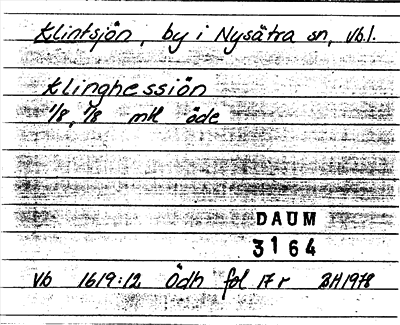 Klintsjön, by i Nysätra sn, Vbl.
Klinghessiön
1/8, 1/8 mtl öde
DAUM
3164
Vb 1619:12 Ödh fol 17 r BH 1978